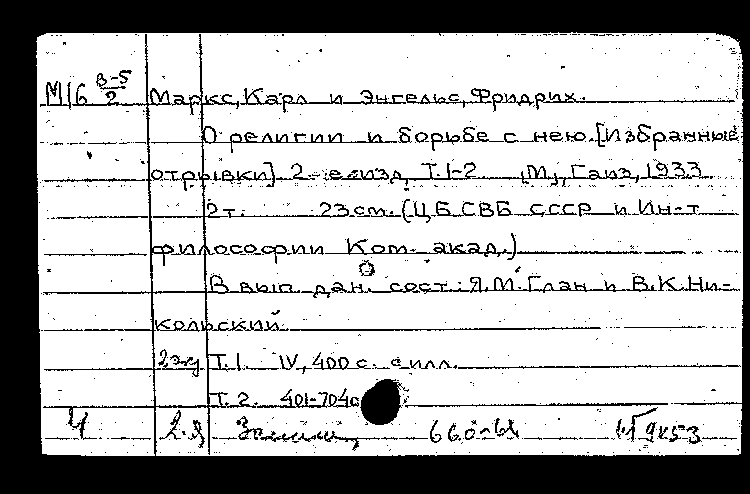 М16 В-5/2 Маркс, Карл и Энгельс, Фридрих.
О религии и борьбе с нею. [Избранные
отрывки]. 2-е изд. Т.1-2. [М.], Гаиз, 1933
2т. 23см. (ЦБ СВБ СССР и Ин-т
философии Ком. акад.)
В вып. дан. сост.: Я.М. Глан и В.К. Ни-
кольский.
2экз Т.1. IV, 400 с. с илл.
Т.2. 401-704с
Ч 2.Я